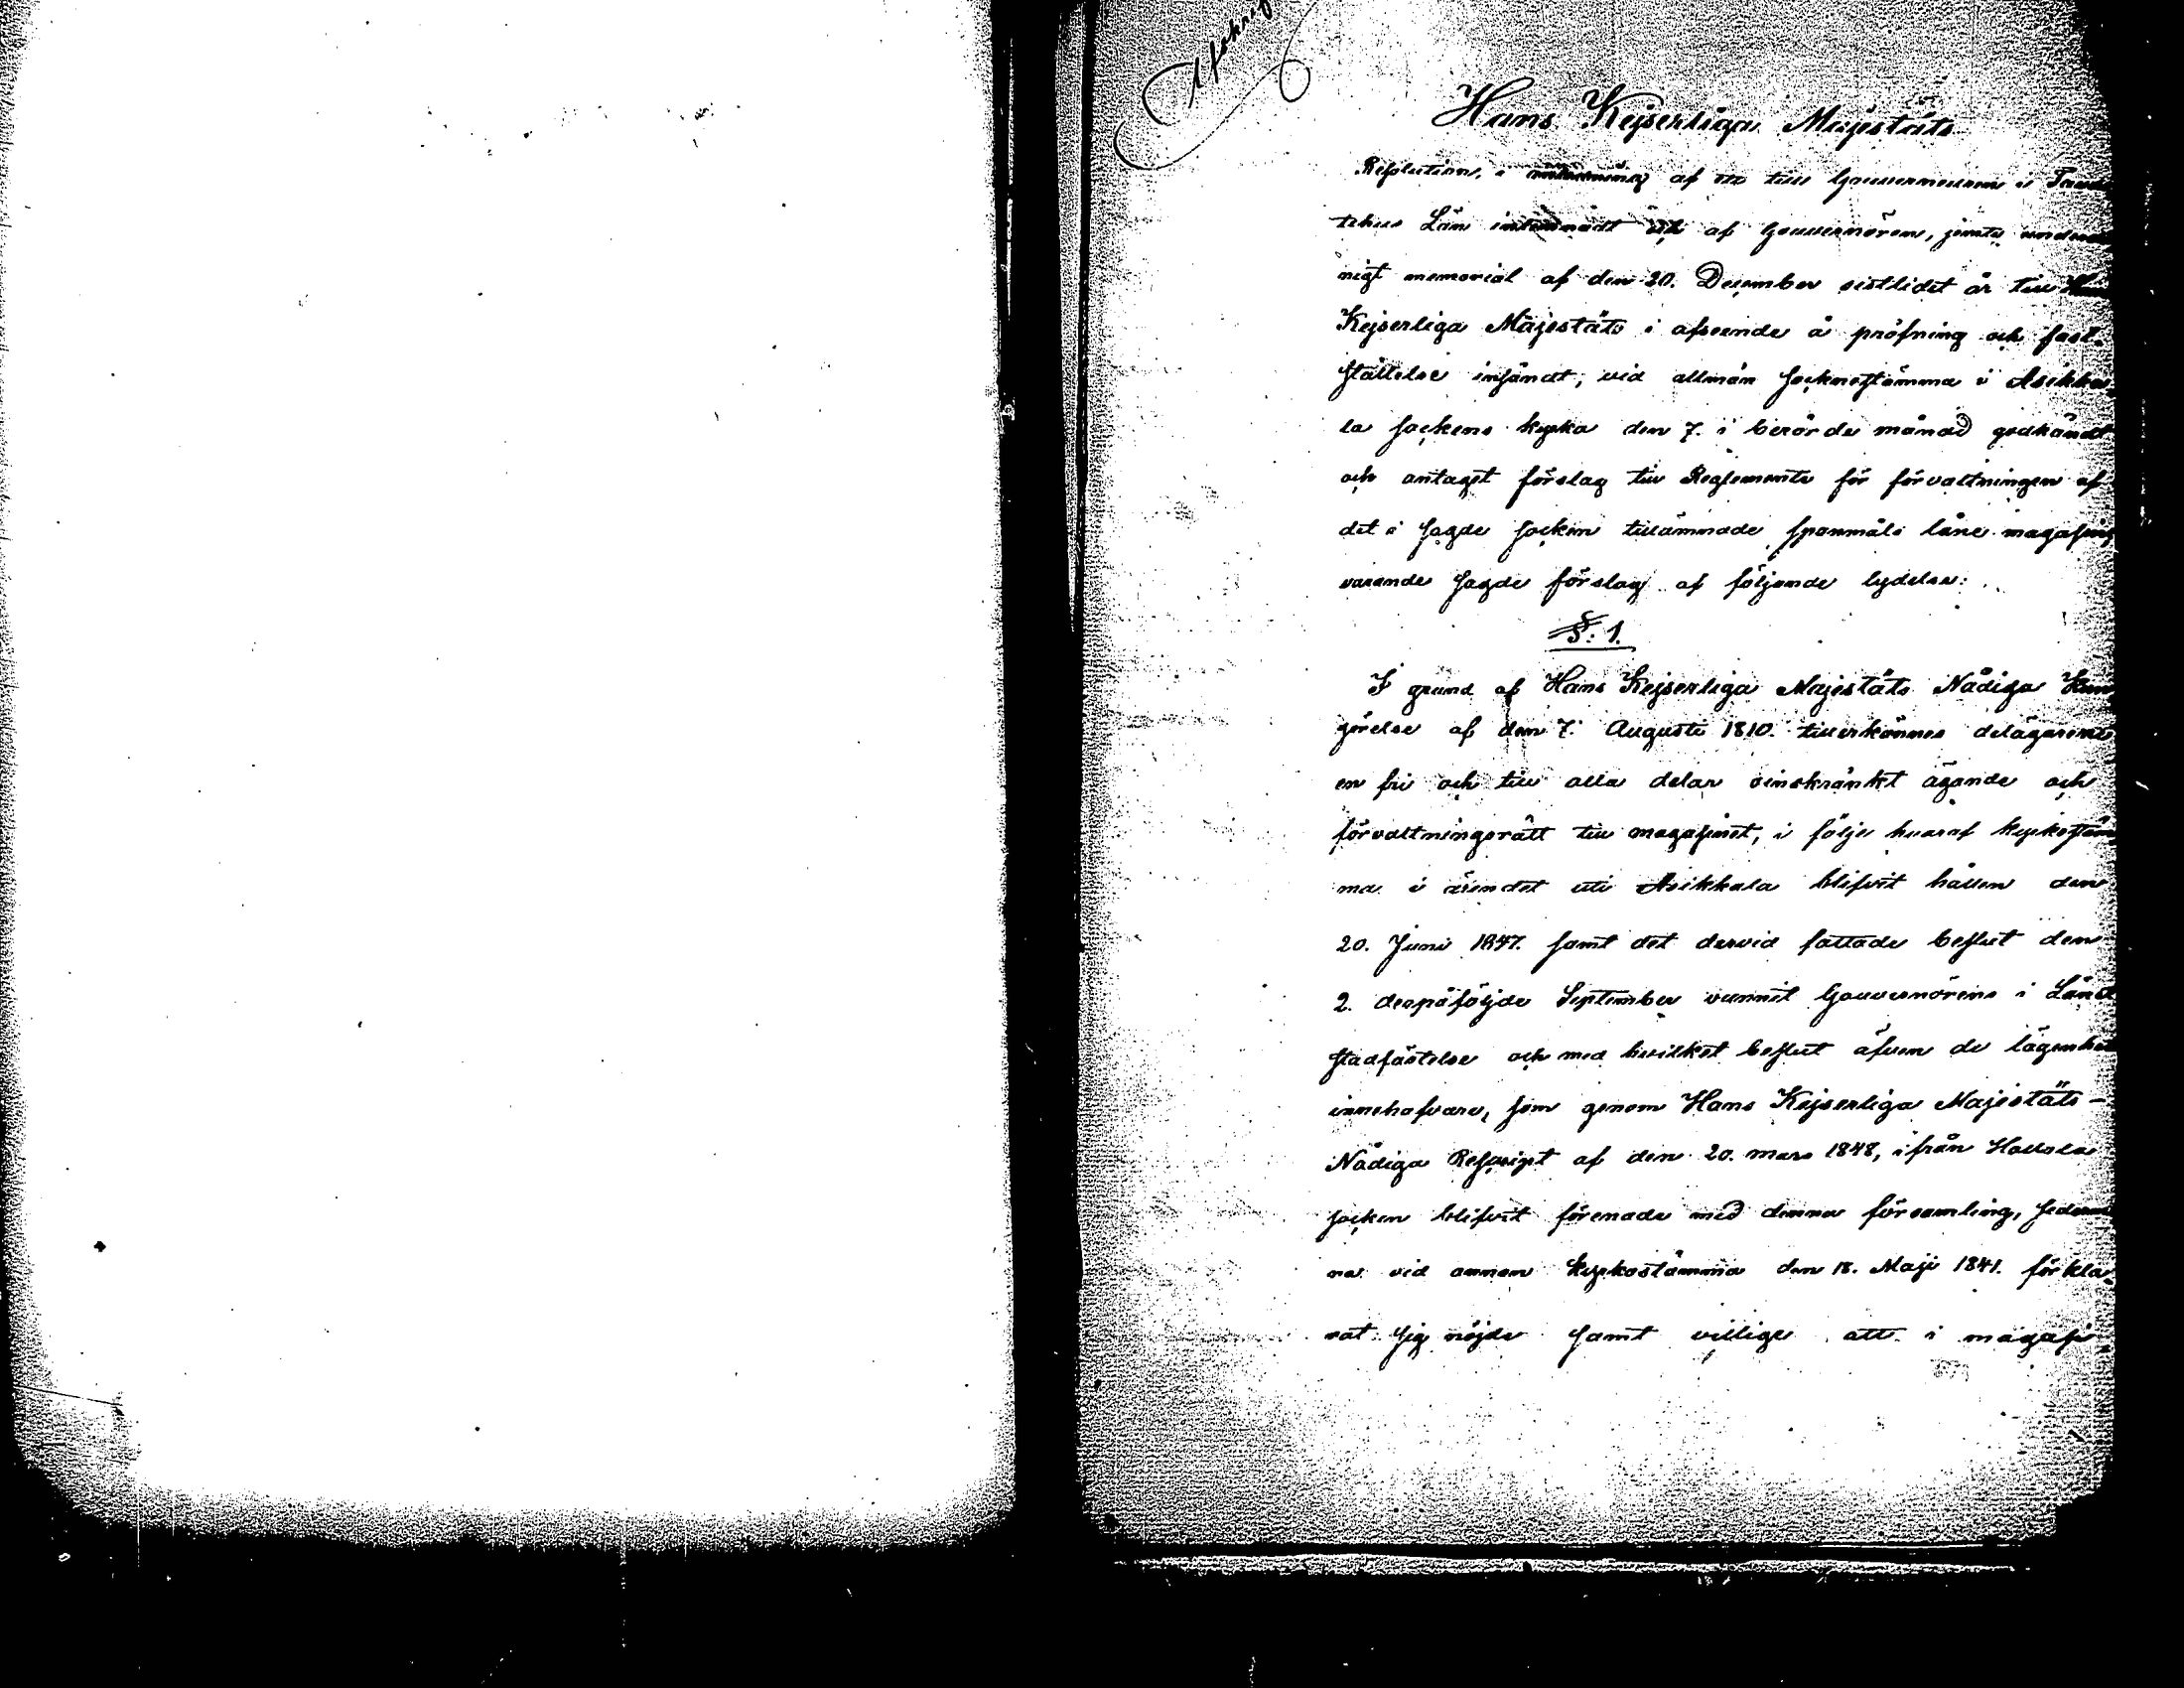 Afskrift
Hans Kejserliga Majestäts
Resolution i anledning af ett till Gouverneuren i Tawa
stehus Län inlemnadt och af Gouvernören, jemte underdå
nigt memorial af den 20. December sistlidet år till Hans
Kejserliga Majestäts i afseende å pröfning och fast-
ställelse insändt, vid allmän sockenstämma i Asikka-
la sockens kyrka den 7. i berörde månad godkändt
och antaget förslag till Reglemente för förvaltningen af
det i sagde socken tillämnade spanmåls låne magasin,
varande sagde förslag af följande lydelse:
§: 1.
I grund af Hans Kejserliga Majestäts Nådiga Kun
görelse af den 7. Augusti 1810. tillerkännes delägarene
en fri och till alla delar oinskränkt ägande och
förvaltningsrätt till magasinet, i följe hvaraf kyrkostäm
ma i ärendet uti Asikkala blifvit hållen den
20. Juni 1847. samt det dervid fattade beslut den
2. derpåföljde September vunnit Gouvernörens i Länet
stadfästelse och med hvilket beslut äfven de lägenhets
innehafvare, som genom Hans Kejserliga Majestäts -
Nådiga Rescript af den 20. mars 1848, ifrån Hollola
socken blifvit förenade med denna församling, sederme
ra vid annan kyrkostämma den 18. Maji 1841. förkla-
rat sig nöjde samt villige att i magasi-